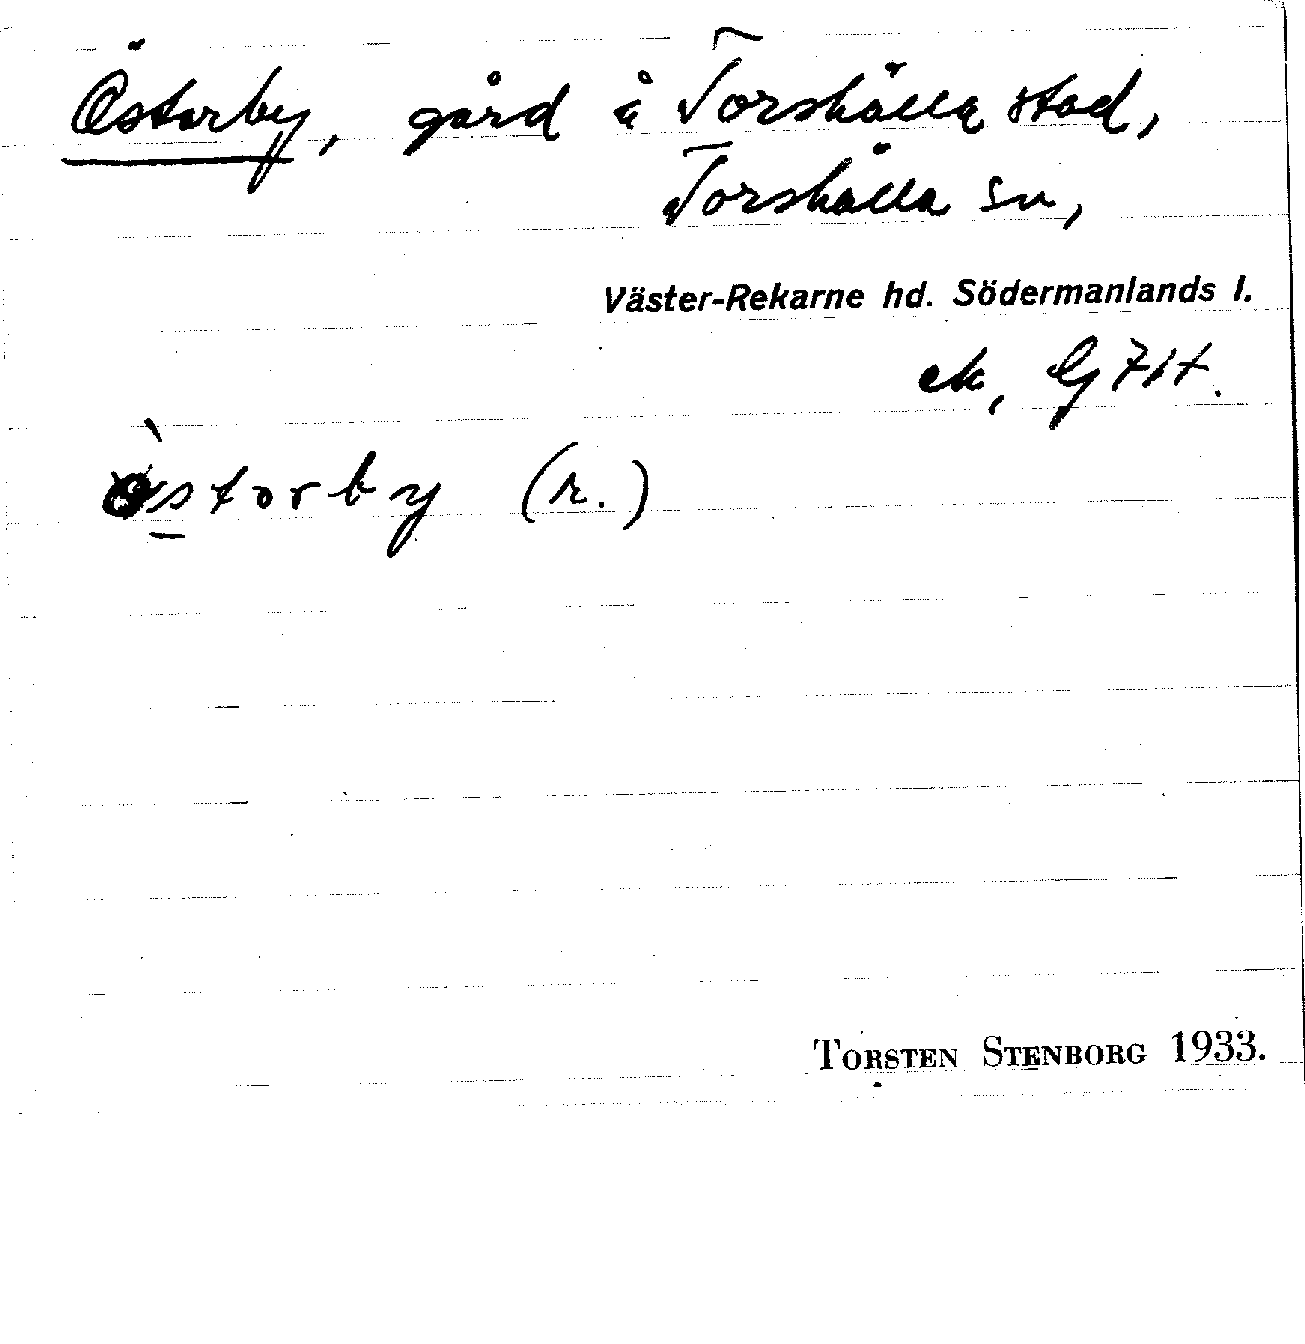 Östorby, gård å Torshälla stad,
Torshälla sn,
Väster-Rekarne hd. Södermanlands l.
ek, G 71 t.
östorby (r.)
TORSTEN STENBORG 1933.